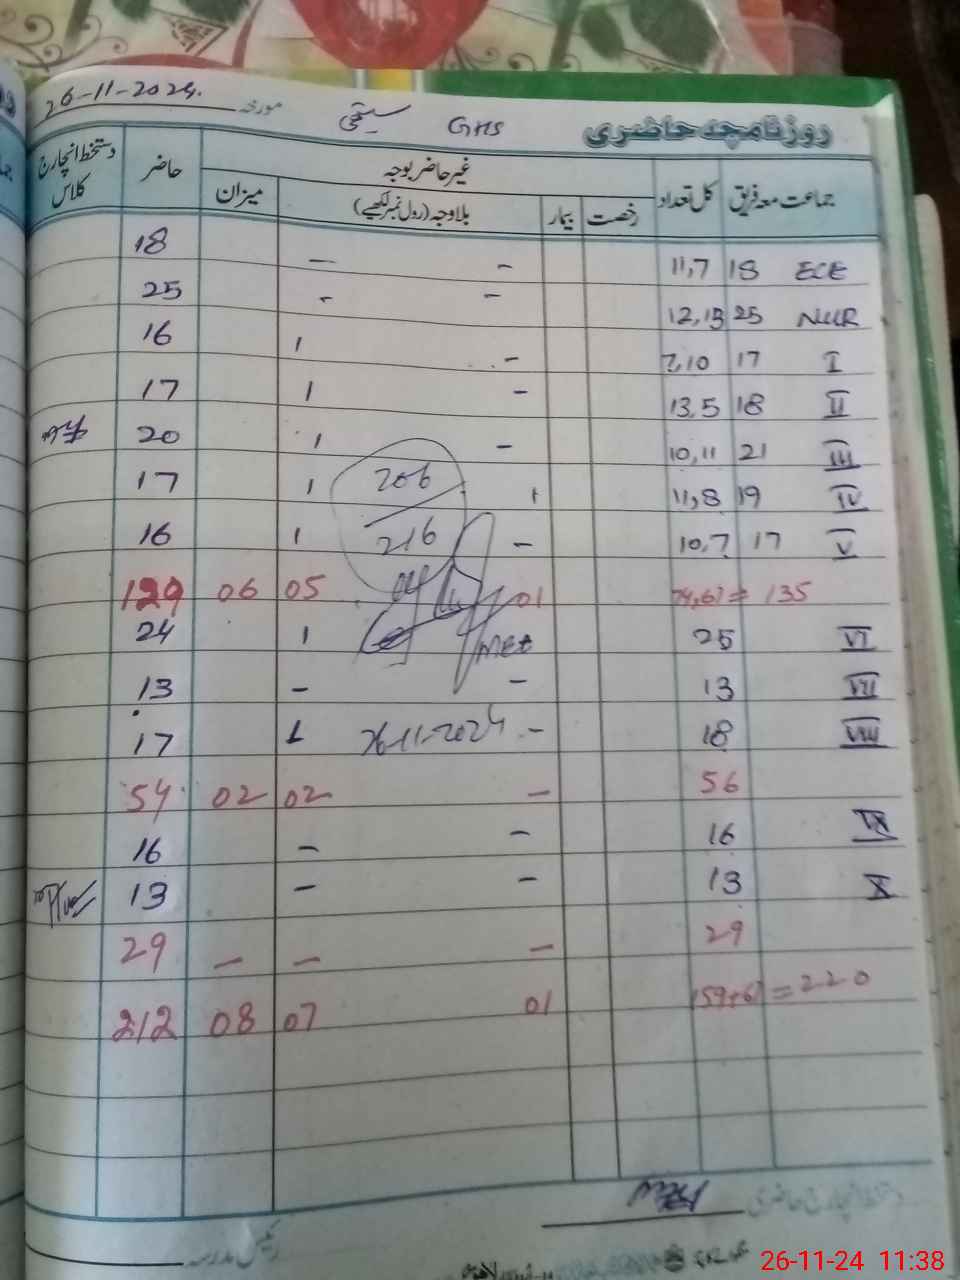 26-11-2024. مورخہ GHS روزنامچہ حاضری
جماعت معہ فریق کل تعداد غیر حاضر بوجہ حاضر دستخط انچارج کلاس
رخصت بیمار بلاوجہ (رول نمبر لکھیے) میزان
18 - - 11,7 18 ECE
25 - - 12,13 25 NUR
16 1 - 7,10 17 I
17 1 - 13,5 18 II
20 1 - 10,11 21 III
17 1 206 1 11,8 19 IV
16 1 216 - 10,7 17 V
129 06 05 01 74,61 = 135
24 1 25 VI
MEA
13 - - 13 VII
17 1 26-11-2024 - 18 VIII
54 02 02 - 56
16 - - 16 IX
13 - - 13 X
29 - - - 29
212 08 07 01 159+61 = 220
دستخط انچارج حاضری
رئیس مدرسہ
26-11-24 11:38